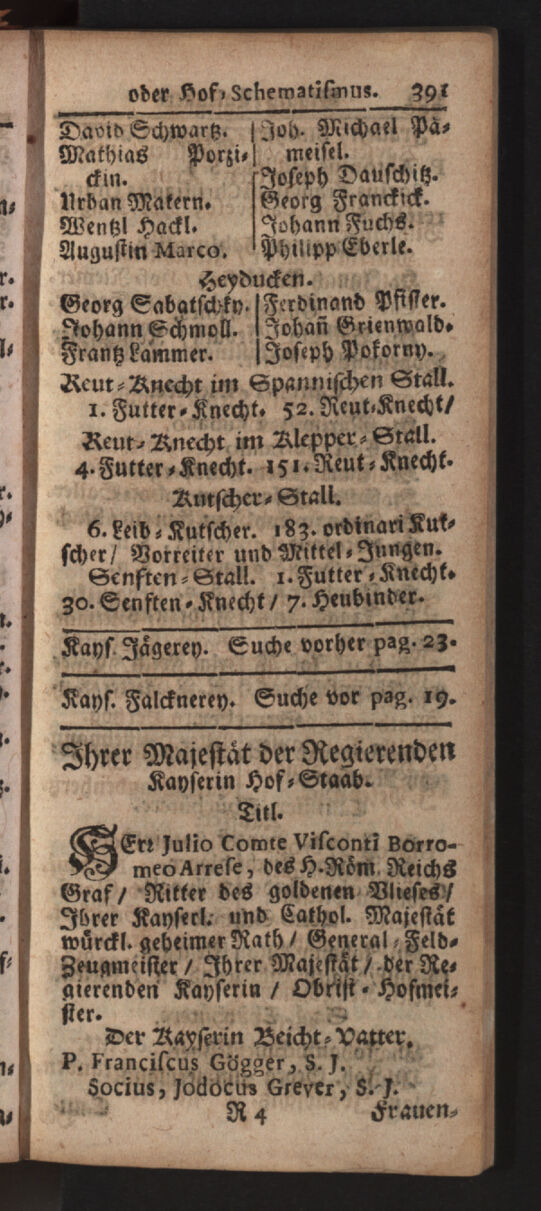 oder Hof-Schematismus. 391
David Schwartz.
Mathias Porzi-
ckin.
Urban Makern.
Wentzl Hackl.
Augustin Marco.
Joh. Michael Pä-
meisel.
Joseph Dauschitz.
Georg Franckick.
Johann Fuchs.
Philipp Eberle.
Heyducken.
Georg Sabatschky.
Johann Schmoll.
Frantz Lammer.
Ferdinand Pfister.
Johañ Grienwald.
Joseph Pokorny.
Reut-Knecht im Spannischen Stall.
1. Futter-Knecht. 52. Reut-Knecht/
Reut-Knecht im Klepper-Stall.
4. Futter-Knecht. 151. Reut-Knecht.
Kutscher-Stall.
6. Leib-Kutscher. 183. ordinari Kut-
scher/ Vorreiter und Mittel-Jungen.
Senften-Stall. 1. Futter-Knecht.
30. Senften-Knecht/ 7. Heubinder.
Kays. Jägerey. Suche vorher pag. 23.
Kays. Falcknerey. Suche vor pag. 19.
Ihrer Majestät der Regierenden
Kayserin Hof-Staab.
Titl.
HErr Julio Comte Visconti Borro-
meo Arrese, des H. Röm. Reichs
Graf/ Ritter des goldenen Vlieses/
Ihrer Kayserl. und Cathol. Majestät
würckl. geheimer Rath/ General-Feld-
Zeugmeister/ Ihrer Majestät/ der Re-
gierenden Kayserin/ Obrist-Hofmei-
ster.
Der Kayserin Beicht-Vatter.
P. Franciscus Gögger, S. J.
Socius, Jodocus Greyer, S. J.
R 4 Frauen-